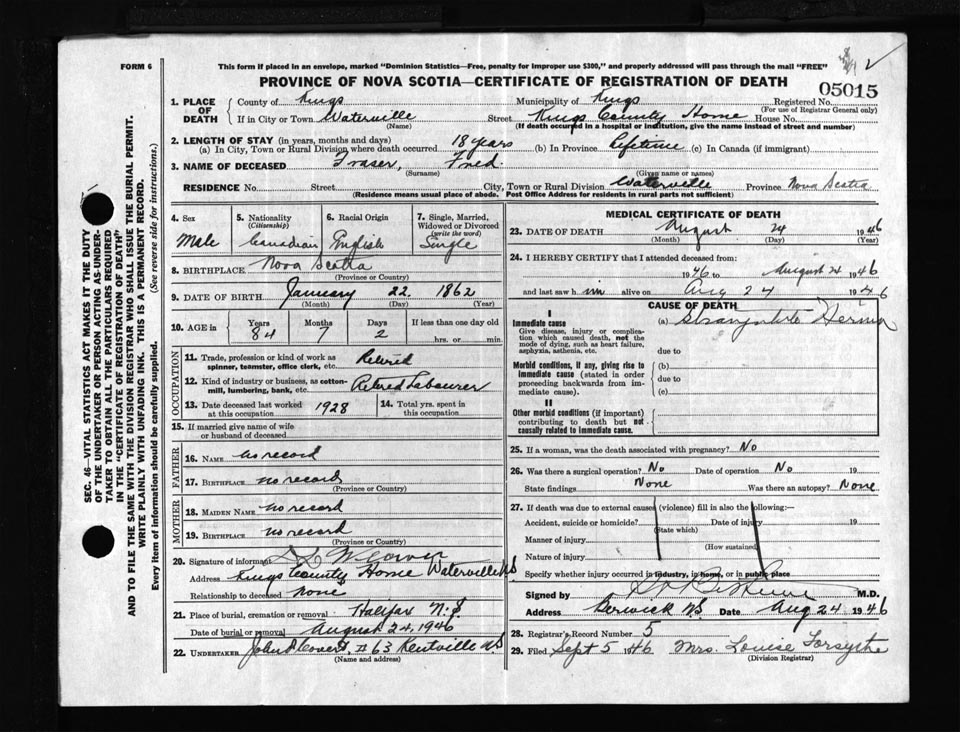 FORM 6
This form if placed in an envelope, marked "Dominion Statistics—Free, penalty for improper use $300," and properly addressed will pass through the mail "FREE"
PROVINCE OF NOVA SCOTIA—CERTIFICATE OF REGISTRATION OF DEATH
05015
1. PLACE OF DEATH
County of Kings Municipality of Kings Registered No.
(For use of Registrar General only)
If in City or Town Waterville Street Kings County Home House No.
(Name) (If death occurred in a hospital or institution, give the name instead of street and number)
2. LENGTH OF STAY (in years, months and days)
(a) In City, Town or Rural Division where death occurred 18 years (b) In Province Lifetime (c) In Canada (if immigrant)
3. NAME OF DECEASED Fraser, Fred
(Surname) (Given name or names)
RESIDENCE No. Street City, Town or Rural Division Waterville Province Nova Scotia
(Residence means usual place of abode. Post Office Address for residents in rural parts not sufficient)
4. Sex Male
5. Nationality (Citizenship) Canadian
6. Racial Origin English
7. Single, Married, Widowed or Divorced (write the word) Single
8. BIRTHPLACE Nova Scotia
(Province or Country)
9. DATE OF BIRTH January 22 1862
(Month) (Day) (Year)
10. AGE in Years 84 Months 7 Days 2 If less than one day old
hrs. or min.
OCCUPATION
11. Trade, profession or kind of work as spinner, teamster, office clerk, etc. Retired
12. Kind of industry or business, as cotton-mill, lumbering, bank, etc. Retired Labourer
13. Date deceased last worked at this occupation 1928
14. Total yrs. spent in this occupation
15. If married give name of wife or husband of deceased
FATHER
16. Name no record
17. Birthplace no record
(Province or Country)
MOTHER
18. Maiden Name no record
19. Birthplace no record
(Province or Country)
20. Signature of informant
Address Kings County Home Waterville NS
Relationship to deceased none
21. Place of burial, cremation or removal Halifax N.S
Date of burial or removal August 24, 1946
22. Undertaker # 63 Kentville NS
(Name and address)
MEDICAL CERTIFICATE OF DEATH
23. DATE OF DEATH August 24 1946
(Month) (Day) (Year)
24. I HEREBY CERTIFY that I attended deceased from:
1946 to August 24 1946
and last saw him alive on Aug 24 1946
CAUSE OF DEATH
I
Immediate cause
Give disease, injury or complication which caused death, not the mode of dying, such as heart failure, asphyxia, asthenia, etc.
(a) Hernia
due to
Morbid conditions, if any, giving rise to immediate cause (stated in order proceeding backwards from immediate cause).
(b)
due to
(c)
II
Other morbid conditions (if important) contributing to death but not causally related to immediate cause.
25. If a woman, was the death associated with pregnancy? No
26. Was there a surgical operation? No Date of operation No 19
State findings None Was there an autopsy? None
27. If death was due to external causes (violence) fill in also the following:—
Accident, suicide or homicide? Date of injury 19
(State which)
Manner of injury
(How sustained)
Nature of injury
Specify whether injury occurred in industry, in home, or in public place
Signed by M.D.
Address Berwick NS Date Aug 24 1946
28. Registrar's Record Number 5
29. Filed Sept 5 1946 Mrs. Louise Forsythe
(Division Registrar)
SEC. 46—VITAL STATISTICS ACT MAKES IT THE DUTY
OF THE UNDERTAKER OR PERSON ACTING AS UNDER-
TAKER TO OBTAIN ALL THE PARTICULARS REQUIRED
IN THE "CERTIFICATE OF REGISTRATION OF DEATH"
AND TO FILE THE SAME WITH THE DIVISION REGISTRAR WHO SHALL ISSUE THE BURIAL PERMIT.
WRITE PLAINLY WITH UNFADING INK. THIS IS A PERMANENT RECORD.
Every item of information should be carefully supplied. (See reverse side for instructions.)